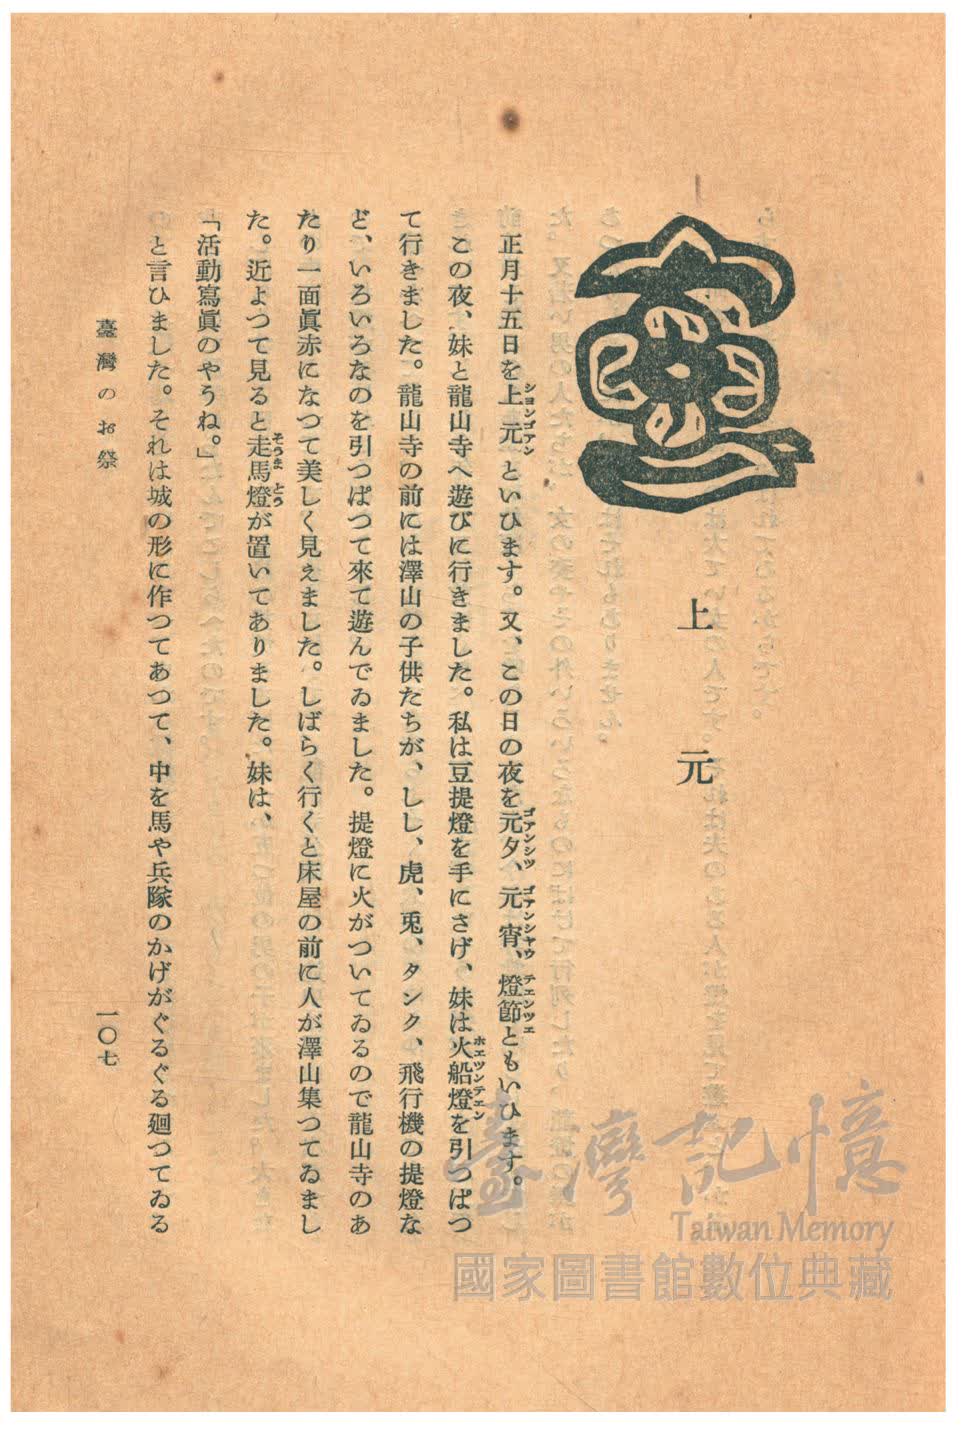 上元
正月十五日を上元といひます。又、この日の夜を元夕、元宵、燈節ともいひます。
シヨンゴアン
ゴアンシツ
ゴアンシヤウ
テエンツエ
この夜、妹と龍山寺へ遊びに行きました。私は豆提燈を手にさげ、妹は火船燈を引つぱつ
ホエツンテエン
て行きました。龍山寺の前には澤山の子供たちが、しし、虎、兎、タンク、飛行機の提燈な
ど、いろいろなのを引つぱつて來て遊んでゐました。提燈に火がついてゐるので龍山寺のあ
たり一面眞赤になつて美しく見えました。しばらく行くと床屋の前に人が澤山集つてゐまし
た。近よつて見ると走馬燈が置いてありました。妹は、
そうま とう
「活動寫眞のやうね。」
と言ひました。それは城の形に作つてあつて、中を馬や兵隊のかげがぐるぐる廻つてゐる
臺灣のお祭
一〇七
臺灣記憶
Taiwan Memory
國家圖書館數位典藏